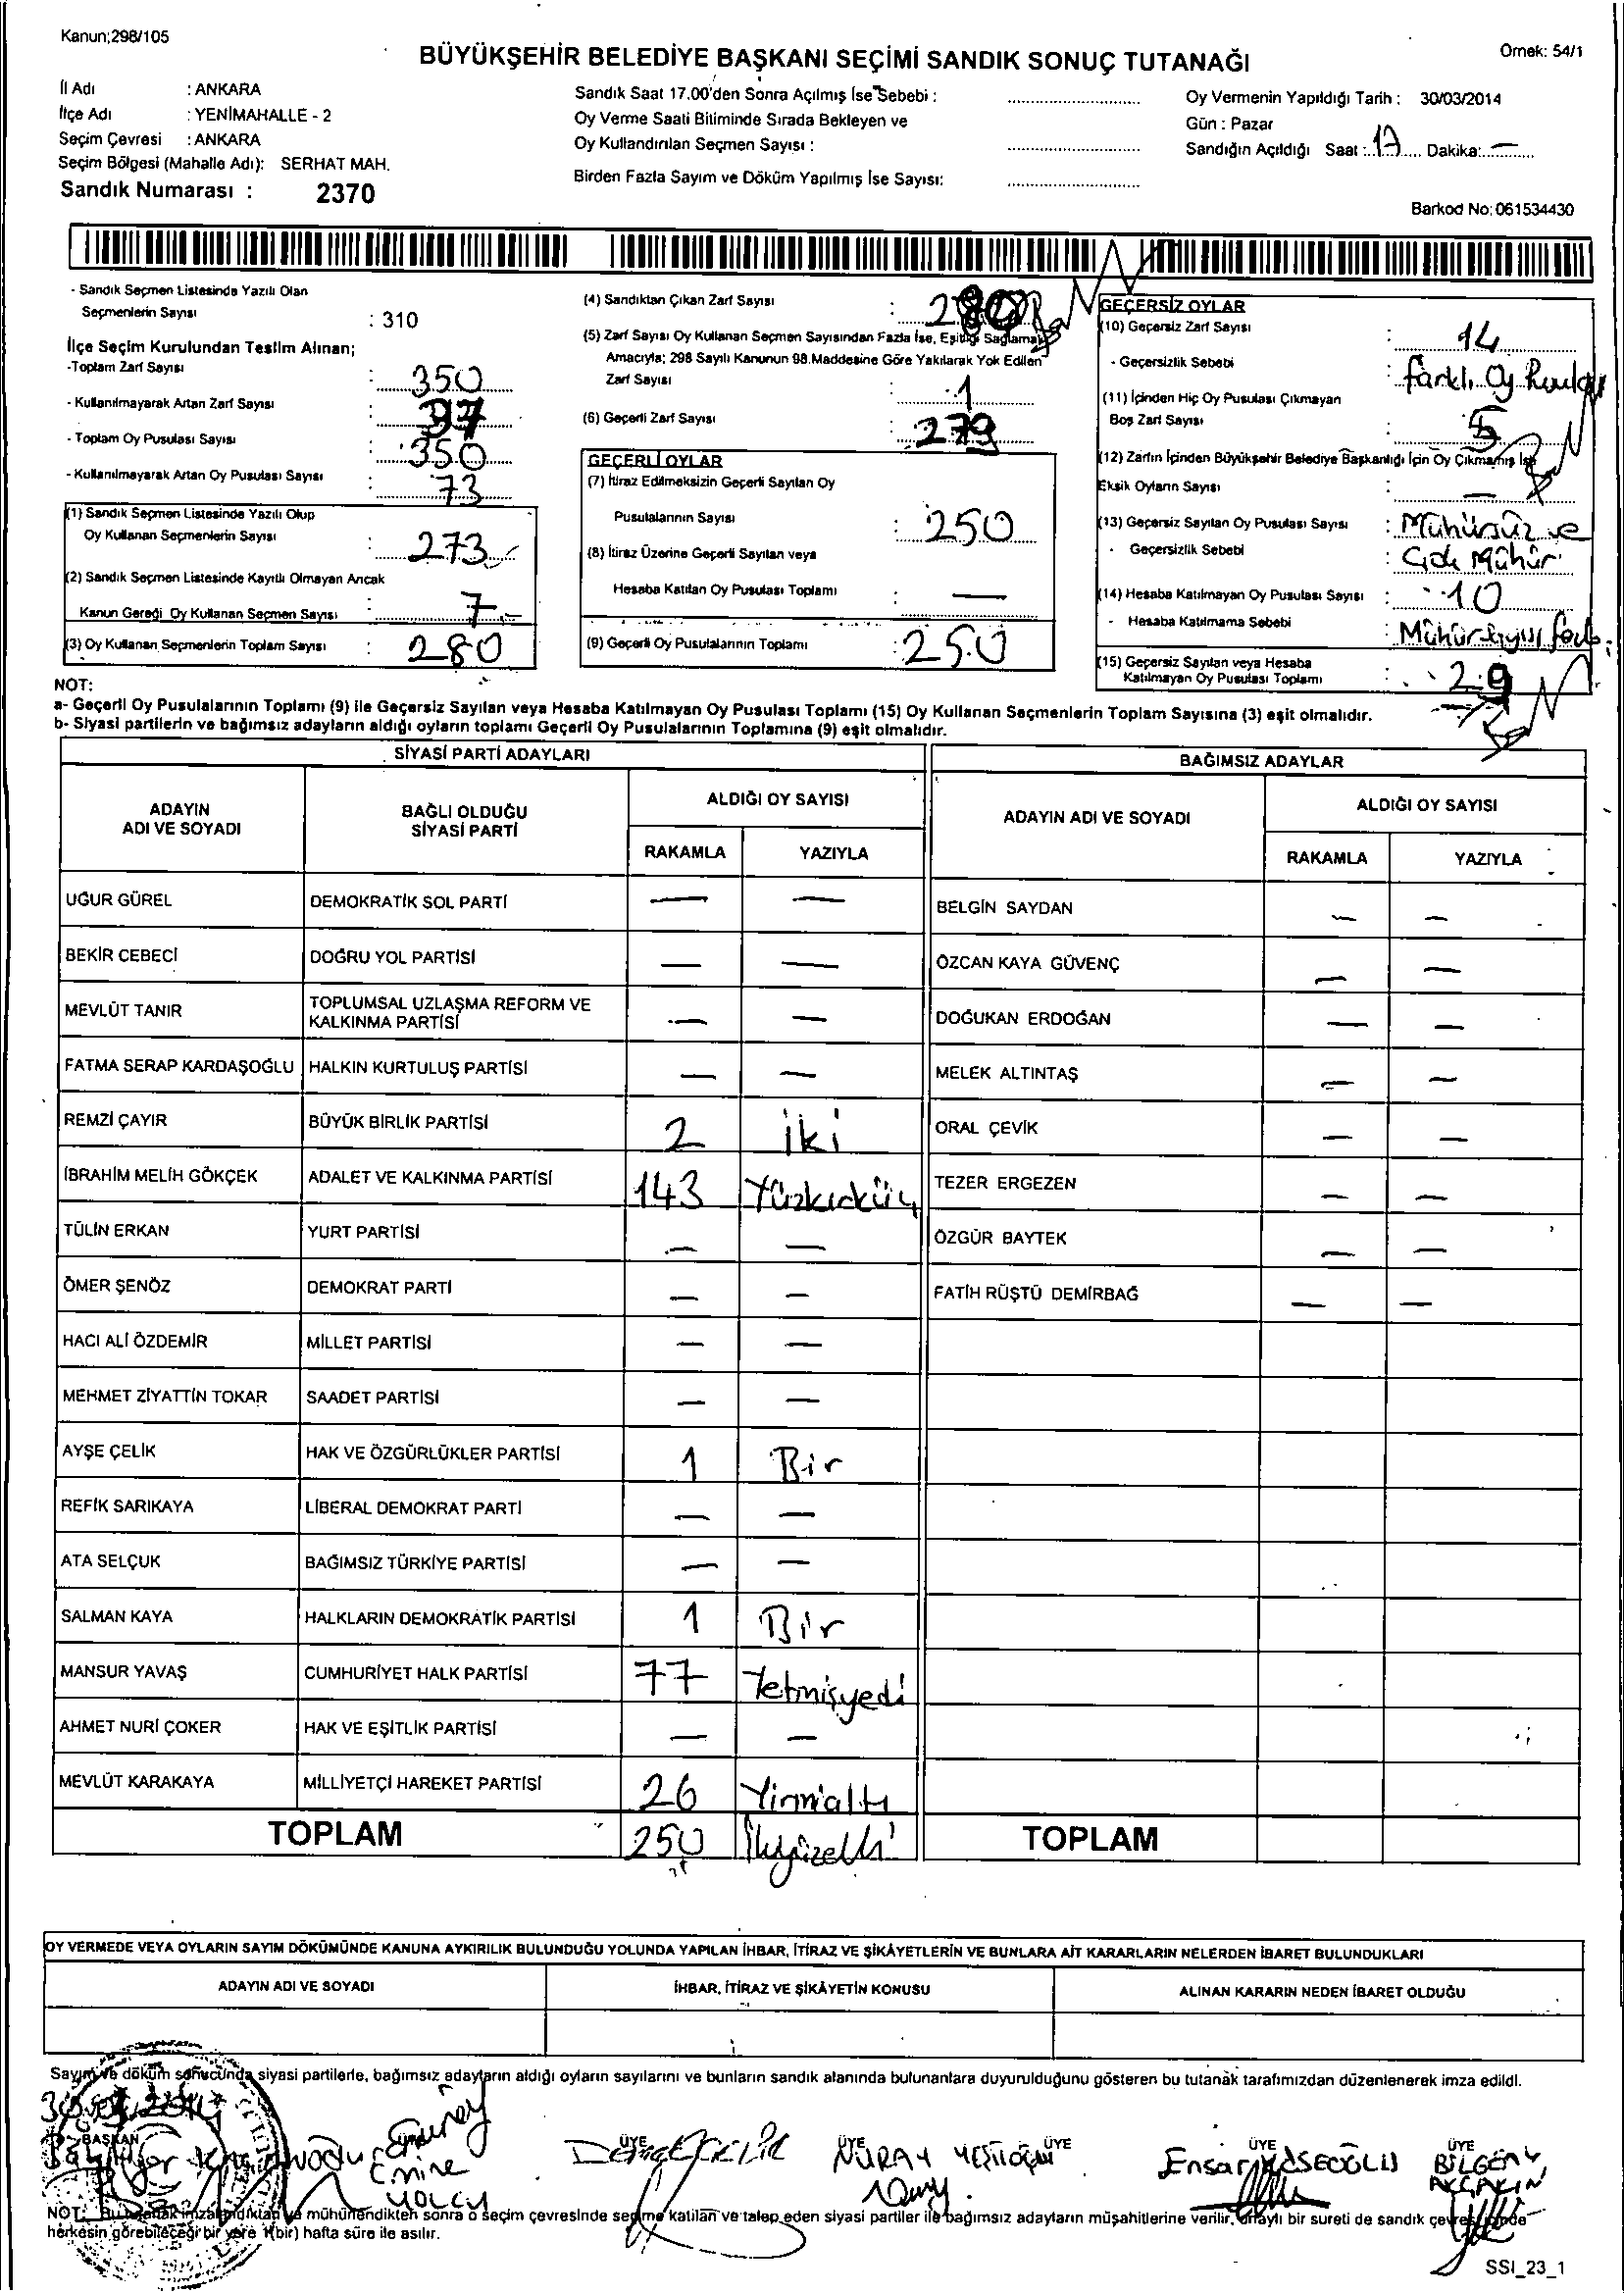 Kanun;298/105
BÜYÜKŞEHİR BELEDİYE BAŞKANI SEÇİMİ SANDIK SONUÇ TUTANAĞI
Örnek: 54/1
İl Adı : ANKARA
İlçe Adı : YENİMAHALLE - 2
Seçim Çevresi : ANKARA
Seçim Bölgesi (Mahalle Adı): SERHAT MAH.
Sandık Numarası : 2370
Sandık Saat 17.00'den Sonra Açılmış İse Sebebi :
Oy Verme Saati Bitiminde Sırada Bekleyen ve
Oy Kullandırılan Seçmen Sayısı :
Birden Fazla Sayım ve Döküm Yapılmış İse Sayısı:
Oy Vermenin Yapıldığı Tarih : 30/03/2014
Gün : Pazar
Sandığın Açıldığı Saat : 17 Dakika: —
Barkod No: 061534430
- Sandık Seçmen Listesinde Yazılı Olan
Seçmenlerin Sayısı : 310
İlçe Seçim Kurulundan Teslim Alınan;
-Toplam Zarf Sayısı : 350
- Kullanılmayarak Artan Zarf Sayısı :
- Toplam Oy Pusulası Sayısı : 350
- Kullanılmayarak Artan Oy Pusulası Sayısı : 73
(1) Sandık Seçmen Listesinde Yazılı Olup
Oy Kullanan Seçmenlerin Sayısı : 273
(2) Sandık Seçmen Listesinde Kayıtlı Olmayan Ancak
Kanun Gereği Oy Kullanan Seçmen Sayısı : 7
(3) Oy Kullanan Seçmenlerin Toplam Sayısı : 280
(4) Sandıktan Çıkan Zarf Sayısı :
(5) Zarf Sayısı Oy Kullanan Seçmen Sayısından Fazla İse, Eşitliği Sağlamak
Amacıyla; 298 Sayılı Kanunun 98.Maddesine Göre Yakılarak Yok Edilen
Zarf Sayısı : 1
(6) Geçerli Zarf Sayısı : 279
GEÇERLİ OYLAR
(7) İtiraz Edilmeksizin Geçerli Sayılan Oy
Pusulalarının Sayısı : 250
(8) İtiraz Üzerine Geçerli Sayılan veya
Hesaba Katılan Oy Pusulası Toplamı : —
(9) Geçerli Oy Pusulalarının Toplamı : 250
GEÇERSİZ OYLAR
(10) Geçersiz Zarf Sayısı : 14
- Geçersizlik Sebebi : farklı Oy
(11) İçinden Hiç Oy Pusulası Çıkmayan
Boş Zarf Sayısı : 5
(12) Zarfın İçinden Büyükşehir Belediye Başkanlığı İçin Oy Çıkmamış İse
Eksik Oyların Sayısı : —
(13) Geçersiz Sayılan Oy Pusulası Sayısı : Mühürsüz ve
- Geçersizlik Sebebi : Çok Mühür
(14) Hesaba Katılmayan Oy Pusulası Sayısı : 10
- Hesaba Katılmama Sebebi : Mühür sayısı fazla
(15) Geçersiz Sayılan veya Hesaba
Katılmayan Oy Pusulası Toplamı : 29
NOT:
a- Geçerli Oy Pusulalarının Toplamı (9) ile Geçersiz Sayılan veya Hesaba Katılmayan Oy Pusulası Toplamı (15) Oy Kullanan Seçmenlerin Toplam Sayısına (3) eşit olmalıdır.
b- Siyasi partilerin ve bağımsız adayların aldığı oyların toplamı Geçerli Oy Pusulalarının Toplamına (9) eşit olmalıdır.
SİYASİ PARTİ ADAYLARI
ADAYIN ADI VE SOYADI BAĞLI OLDUĞU SİYASİ PARTİ ALDIĞI OY SAYISI
RAKAMLA YAZIYLA
UĞUR GÜREL DEMOKRATİK SOL PARTİ — —
BEKİR CEBECİ DOĞRU YOL PARTİSİ — —
MEVLÜT TANIR TOPLUMSAL UZLAŞMA REFORM VE KALKINMA PARTİSİ — —
FATMA SERAP KARDAŞOĞLU HALKIN KURTULUŞ PARTİSİ — —
REMZİ ÇAYIR BÜYÜK BİRLİK PARTİSİ 2 iki
İBRAHİM MELİH GÖKÇEK ADALET VE KALKINMA PARTİSİ 143 Yüzkırküç
TÜLİN ERKAN YURT PARTİSİ — —
ÖMER ŞENÖZ DEMOKRAT PARTİ — —
HACI ALİ ÖZDEMİR MİLLET PARTİSİ — —
MEHMET ZİYATTİN TOKAR SAADET PARTİSİ — —
AYŞE ÇELİK HAK VE ÖZGÜRLÜKLER PARTİSİ 1 Bir
REFİK SARIKAYA LİBERAL DEMOKRAT PARTİ — —
ATA SELÇUK BAĞIMSIZ TÜRKİYE PARTİSİ — —
SALMAN KAYA HALKLARIN DEMOKRATİK PARTİSİ 1 Bir
MANSUR YAVAŞ CUMHURİYET HALK PARTİSİ 77 Yetmişyedi
AHMET NURİ ÇOKER HAK VE EŞİTLİK PARTİSİ — —
MEVLÜT KARAKAYA MİLLİYETÇİ HAREKET PARTİSİ 26 Yirmialtı
TOPLAM 250 İkiyüzelli
BAĞIMSIZ ADAYLAR
ADAYIN ADI VE SOYADI ALDIĞI OY SAYISI
RAKAMLA YAZIYLA
BELGİN SAYDAN — —
ÖZCAN KAYA GÜVENÇ — —
DOĞUKAN ERDOĞAN — —
MELEK ALTINTAŞ — —
ORAL ÇEVİK — —
TEZER ERGEZEN — —
ÖZGÜR BAYTEK — —
FATİH RÜŞTÜ DEMİRBAĞ — —
TOPLAM
OY VERMEDE VEYA OYLARIN SAYIM DÖKÜMÜNDE KANUNA AYKIRILIK BULUNDUĞU YOLUNDA YAPILAN İHBAR, İTİRAZ VE ŞİKÂYETLERİN VE BUNLARA AİT KARARLARIN NELERDEN İBARET BULUNDUKLARI
ADAYIN ADI VE SOYADI İHBAR, İTİRAZ VE ŞİKÂYETİN KONUSU ALINAN KARARIN NEDEN İBARET OLDUĞU
Sayım ve döküm sonucunda siyasi partilerle, bağımsız adayların aldığı oyların sayılarını ve bunların sandık alanında bulunanlara duyurulduğunu gösteren bu tutanak tarafımızdan düzenlenerek imza edildi.
BAŞKAN ÜYE ÜYE ÜYE ÜYE ÜYE
Emine YOLCU
NURAY
Ensar KÖSEOĞLU
BİLGEN AKÇAKIN
NOT: Bu tutanak imzalandıktan ve mühürlendikten sonra o seçim çevresinde seçime katılan ve talep eden siyasi partiler ile bağımsız adayların müşahitlerine verilir, onaylı bir sureti de sandık çevresinde
herkesin görebileceği bir yere 1(bir) hafta süre ile asılır.
SSI_23_1